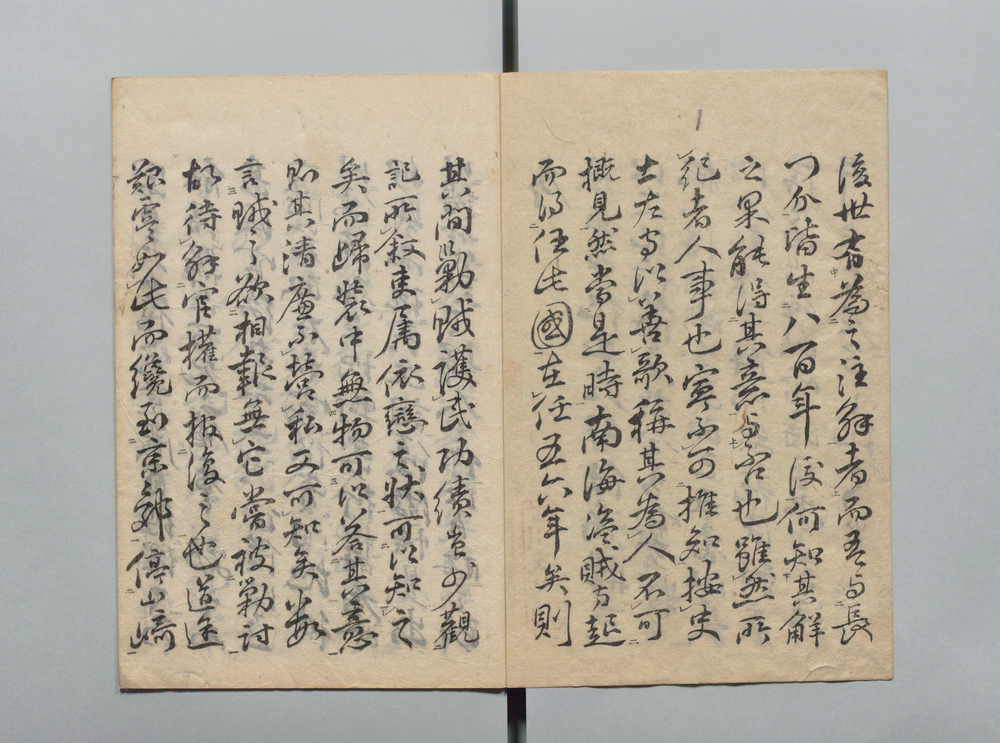 後世有為之注解者而吾与長
門介皆生八百年後何知其解
之果能得其意与否也雖然所
紀者人事也寧不可推知按史
土左守以善歌稱其為人不可
概見然當是時南海盗賊方起
而得任此國在任五六年矣則
其間勦賊護民功績豈少觀
記所叙吏属依戀之状可以知之
矣而歸装中無物可以答其意
則其清廉不營私又可知矣數
言賊之欲相報無它當被勦討
故待解官權而报復之也道途
艱如此而纔到京郊停山崎